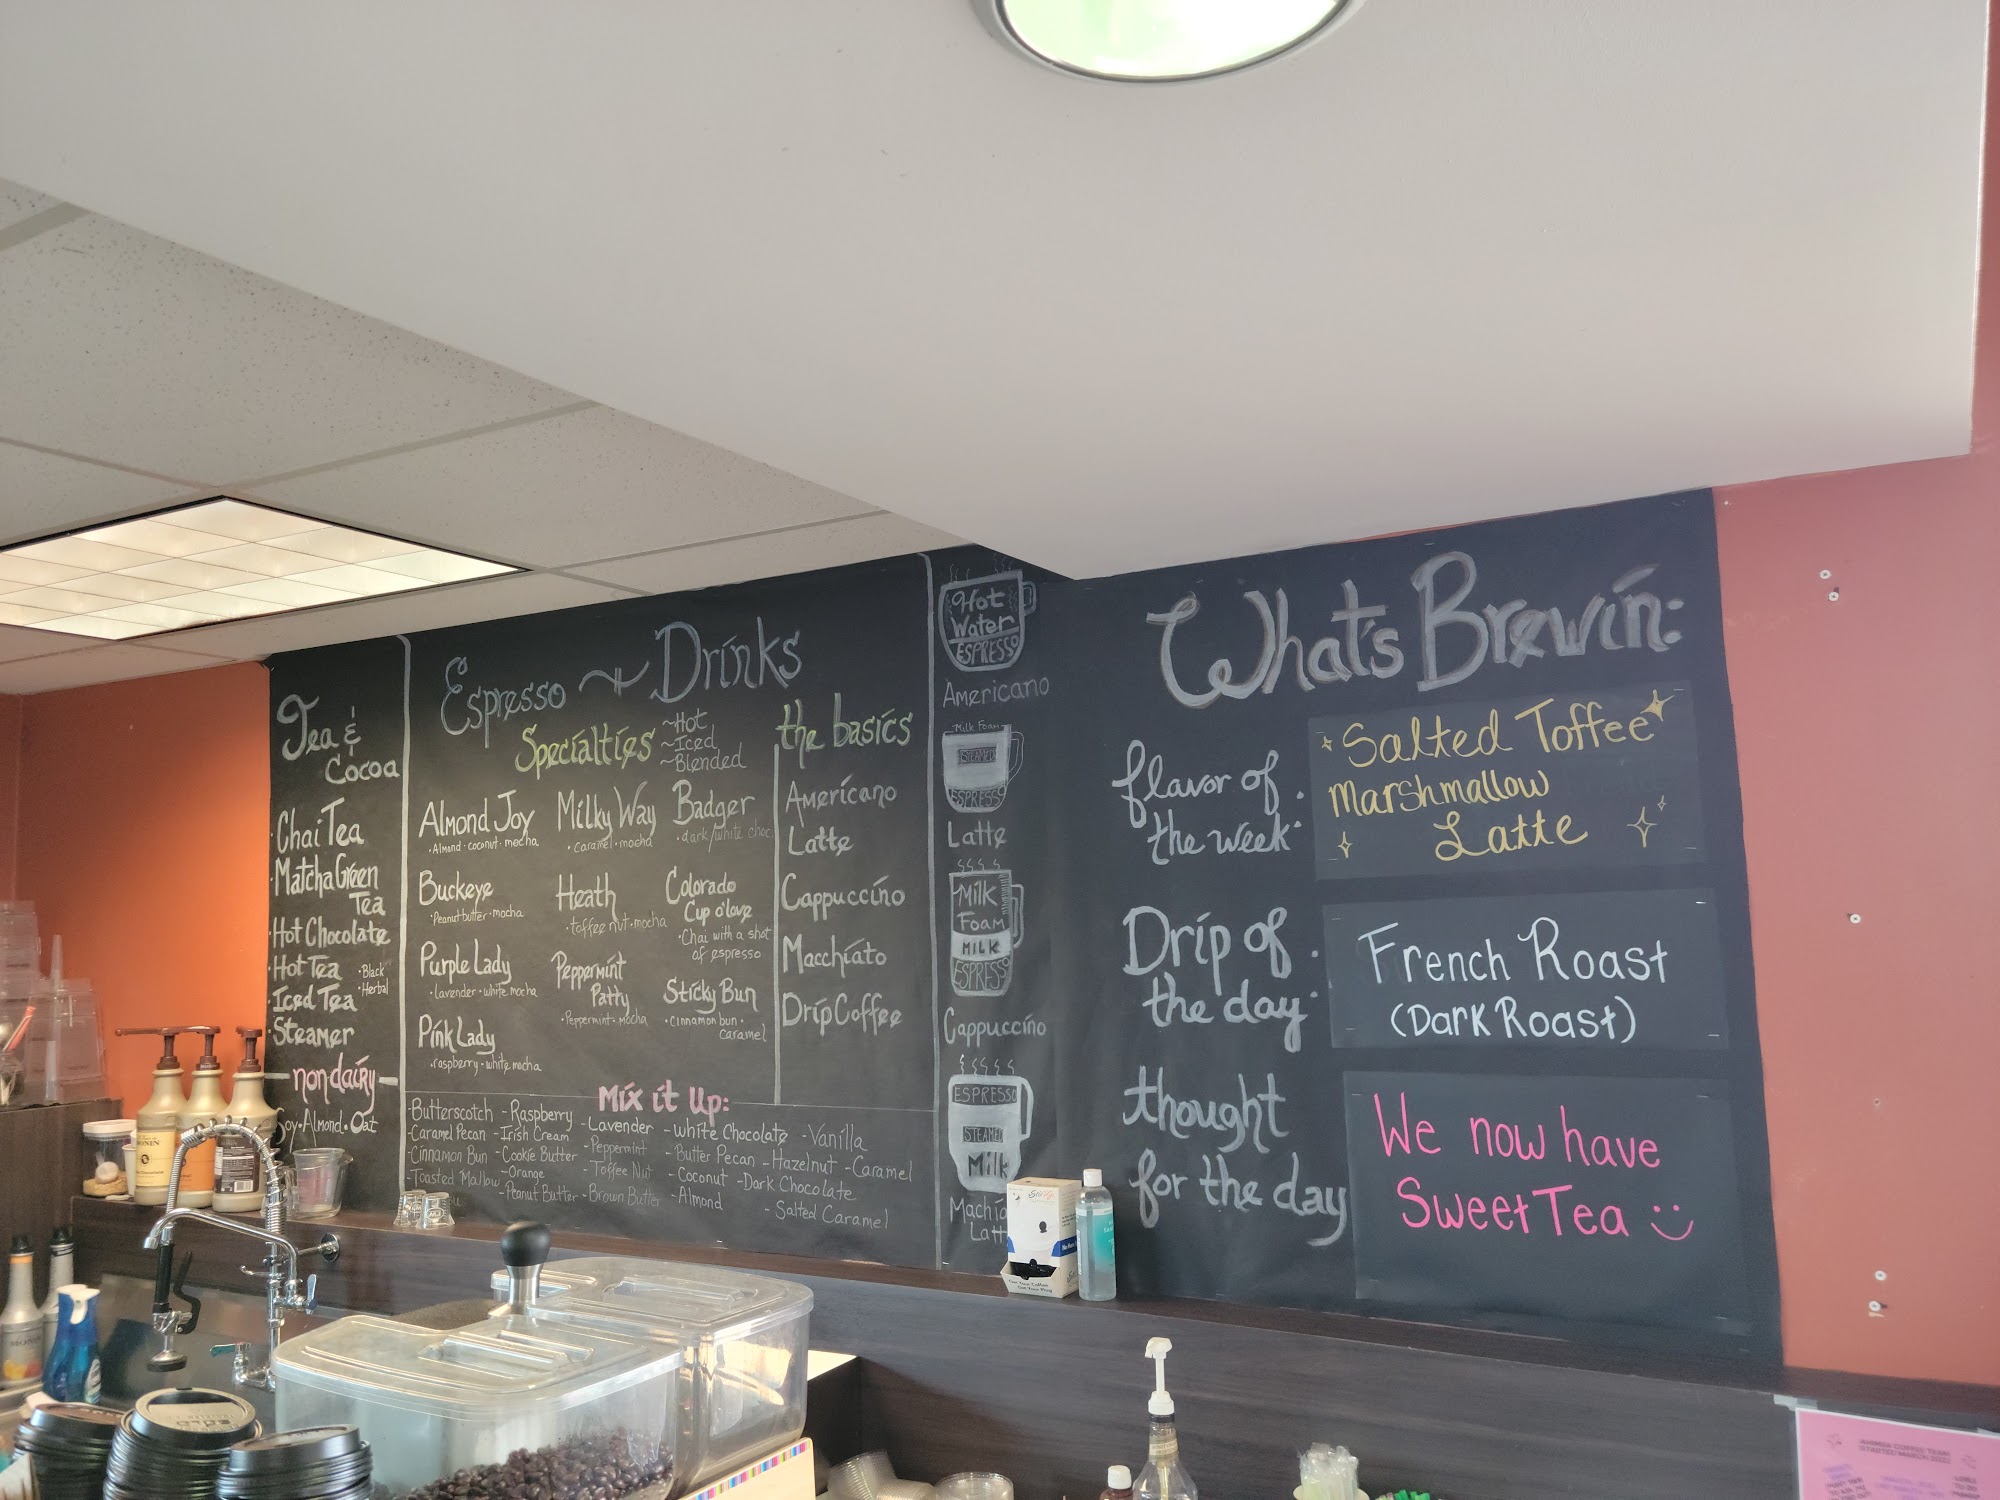 Tea &
Cocoa
· Chai Tea
· Matcha Green
Tea
· Hot Chocolate
· Hot Tea
· Black
· Herbal
· Iced Tea
· Steamer
non dairy
Soy · Almond · Oat
Espresso Drinks
Specialties
~Hot
~Iced
~Blended
Almond Joy
· Almond · coconut · mocha
Buckeye
· Peanut butter · mocha
Purple Lady
· lavender · white mocha
Pink Lady
· raspberry · white mocha
Milky Way
· caramel · mocha
Heath
· toffee nut · mocha
Peppermint
Patty
· Peppermint · mocha
Badger
· dark/white choc
Colorado
Cup o'love
· Chai with a shot
of espresso
Sticky Bun
· cinnamon bun ·
caramel
the basics
Americano
Latte
Cappuccino
Macchiato
Drip Coffee
Mix it Up:
- Butterscotch
- Caramel Pecan
- Cinnamon Bun
- Toasted Mallow
- Raspberry
- Irish Cream
- Cookie Butter
- Orange
- Peanut Butter
- Lavender
- Peppermint
- Toffee Nut
- Brown Butter
- White Chocolate
- Butter Pecan
- Coconut
- Almond
- Vanilla
- Hazelnut
- Caramel
- Dark Chocolate
- Salted Caramel
Hot
Water
ESPRESSO
Americano
Milk Foam
STEAMED
ESPRESSO
Latte
Milk
Foam
MILK
ESPRESSO
Cappuccino
ESPRESSO
STEAMED
Milk
Macchia
Latt
What's Brewin:
flavor of
the week:
Salted Toffee
Marshmallow
Latte
Drip of
the day:
French Roast
(Dark Roast)
thought
for the day
We now have
Sweet Tea